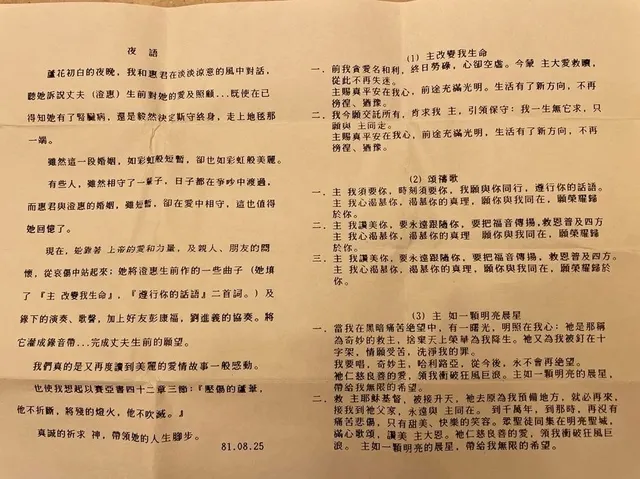 夜語
蘆花初白的夜晚，我和惠君在淡淡涼意的風中對話，
聽她訴說丈夫（澄惠）生前對她的愛及照顧…既使在已
得知她有了腎臟病，還是毅然決定廝守終身，走上地毯那
一端。
雖然這一段婚姻，如彩虹般短暫，卻也如彩虹般美麗。
有些人，雖然相守了一輩子，日子都在爭吵中渡過，
而惠君與澄惠的婚姻，雖短暫，卻在愛中相守，這也值得
她回憶了。
現在，她靠著 上帝的愛和力量，及親人、朋友的關
懷，從哀傷中站起來；她將澄惠生前作的一些曲子（她填
了『主 改變我生命』，『遵行你的話語』二首詞。）及
錄下的演奏、歌聲，加上好友彭康福，劉進義的協奏。將
它灌成錄音帶…完成丈夫生前的願望。
我們真的是又再度讀到美麗的愛情故事一般感動。
也使我想起以賽亞書四十二章三節：『壓傷的蘆葦，
他不折斷，將殘的燈火，他不吹滅。』
真誠的祈求 神，帶領她的人生腳步。
81.08.25
(1) 主改變我生命
一、前我貪愛名和利，終日勞碌，心卻空虛。今蒙 主大愛救贖，
從此不再失迷。
主賜真平安在我心，前途充滿光明。生活有了新方向，不再
徬徨、猶豫。
二、我今願交託所有，肯求我 主，引領保守；我一生無它求，只
願與 主同走。
主賜真平安在我心，前途充滿光明。生活有了新方向，不再
徬徨、猶豫。
(2) 頌禱歌
一、主 我須要你，時刻須要你，我願與你同行，遵行你的話語。
主 我心渴慕你，渴慕你的真理，願你與我同在，願榮耀歸
於你。
二、主 我讚美你，要永遠跟隨你，要把福音傳揚，救恩普及四方
主 我心渴慕你，渴慕你的真理 願你與我同在，願榮耀歸
於你。
三、主 我讚美你，要永遠跟隨你，要把福音傳揚，救恩普及四方。
主 我心渴慕你，渴慕你的真理，願你與我同在，願榮耀歸於
你。
(3) 主 如一顆明亮晨星
一、當我在黑暗痛苦絕望中，有一曙光，明照在我心；祂是那稱
為奇妙的救主，捨棄天上榮華為我降生。祂又為我被釘在十
字架，情願受苦，洗淨我的罪。
我要唱，奇妙主，哈利路亞，從今後，永不會再絕望。
祂仁慈良善的愛，領我衝破狂風巨浪。主如一顆明亮的晨星，
帶給我無限的希望。
二、救 主耶穌基督，被接升天，祂去原為我預備地方，就必再來，
接我到祂父家，永遠與 主同在。 到千萬年，到那時，再沒有
痛苦悲傷，只有甜美、快樂的笑容。眾聖徒同集在明亮聖城，
滿心歌頌，讚美 主大恩。祂仁慈良善的愛，領我衝破狂風巨
浪。 主如一顆明亮的晨星，帶給我無限的希望。